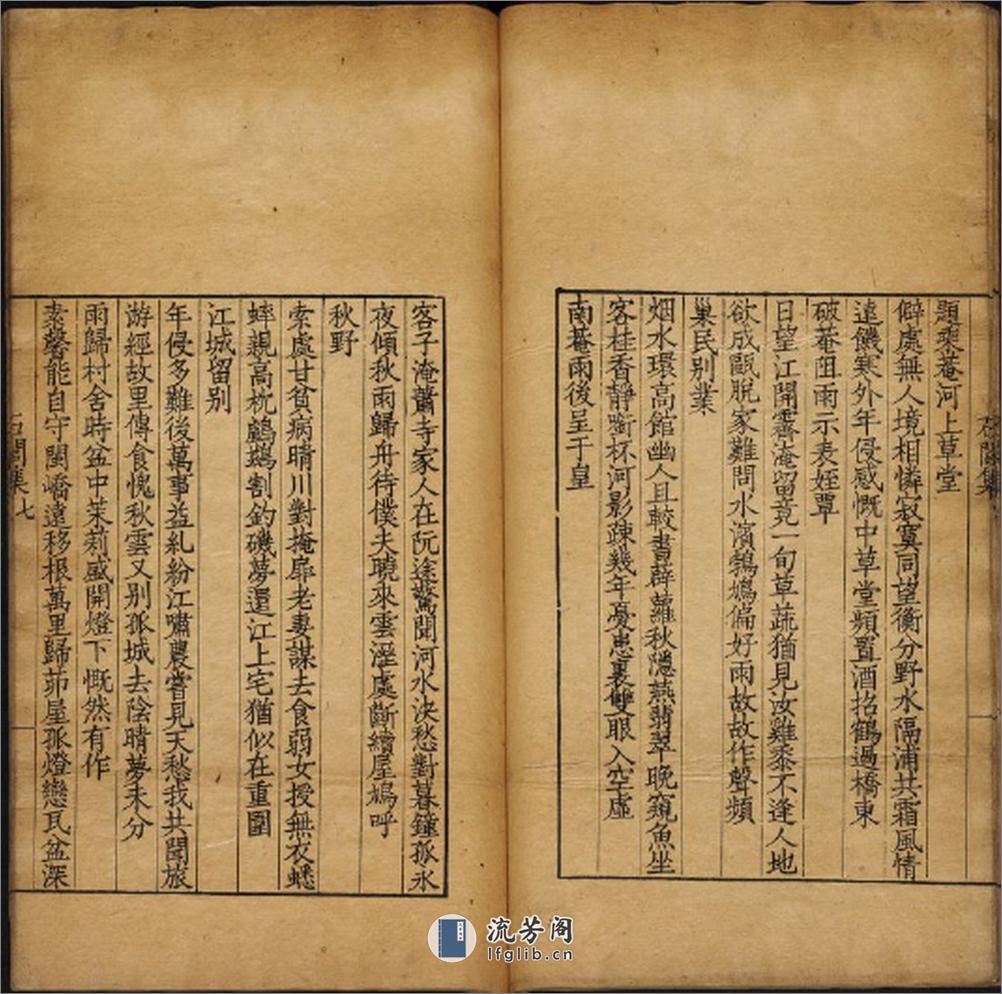 題乘菴河上草堂
僻處無人境相憐寂寞同望衡分野水隔浦共霜風情
遠饑寒外年侵感慨中草堂頻置酒招鶴過橋東
破菴阻雨示表姪覃
日望江開霽淹留竟一旬草蔬猶見汝雞黍不逢人地
欲成甌脫家難問水濱鵓鳩偏好雨故故作聲頻
巢民別業
烟水環高館幽人且較書薜蘿秋隱燕翡翠晚窺魚坐
客桂香靜銜杯河影疎幾年憂患裏雙眼入空虛
南菴雨後呈于皇
客子淹蕭寺家人在阮途驚聞河水決愁對暮鐘孤永
夜傾秋雨歸舟待僕夫曉來雲溼處斷續屋鳩呼
秋野
索處甘貧病晴川對掩扉老妻謀去食弱女授無衣蟋
蟀親高枕鶺鴒割釣磯夢還江上宅猶似在重圍
江城留別
年侵多難後萬事益糺紛江嘯農嘗見天愁我共聞旅
游經故里傳食愧秋雲又別孤城去陰晴夢未分
雨歸村舍時盆中茉莉盛開燈下慨然有作
素馨能自守閩嶠遠移根萬里歸茆屋孤燈戀瓦盆深
集 七
流芳阁
lfglib.cn